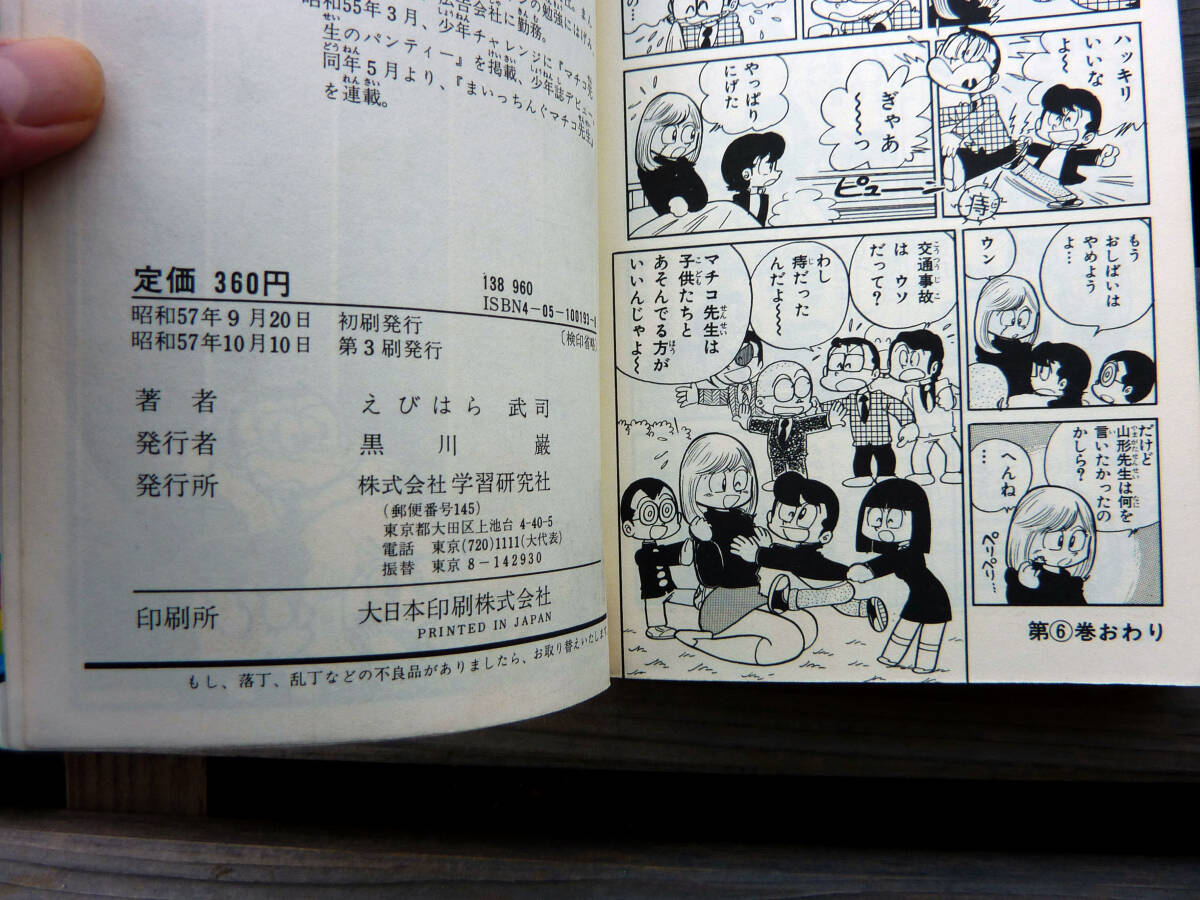 広告会社に勤務。
昭和55年3月、少年チャレンジに『マチコ先
生のパンティー』を掲載、少年誌デビュー。
同年5月より、『まいっちんぐマチコ先生』
を連載。
定価 360円
138 960
ISBN4-05-100191-
昭和57年9月20日 初刷発行
〔検印省略
昭和57年10月10日 第3刷発行
著者 えびはら 武司
発行者 黒川 巌
発行所 株式会社 学習研究社
(郵便番号145)
東京都大田区上池台 4-40-5
電話 東京(720)1111(大代表)
振替 東京 8-142930
印刷所 大日本印刷株式会社
PRINTED IN JAPAN
もし、落丁、乱丁などの不良品がありましたら、お取り替えいたします
ハッキリ
いいな
よ〜
ぎゃあ
〜〜っ
やっぱり
にげた
ピューン
痔
もう
おしばいは
やめよう
よ…
ウン
交通事故
は ウソ
だって?
わし
痔だった
んだよ〜
マチコ先生は
子供たちと
あそんでる方が
いいんじゃよ〜
だけど
山形先生は何を
言いたかったの
かしら?
へんね
…
第⑥巻おわり